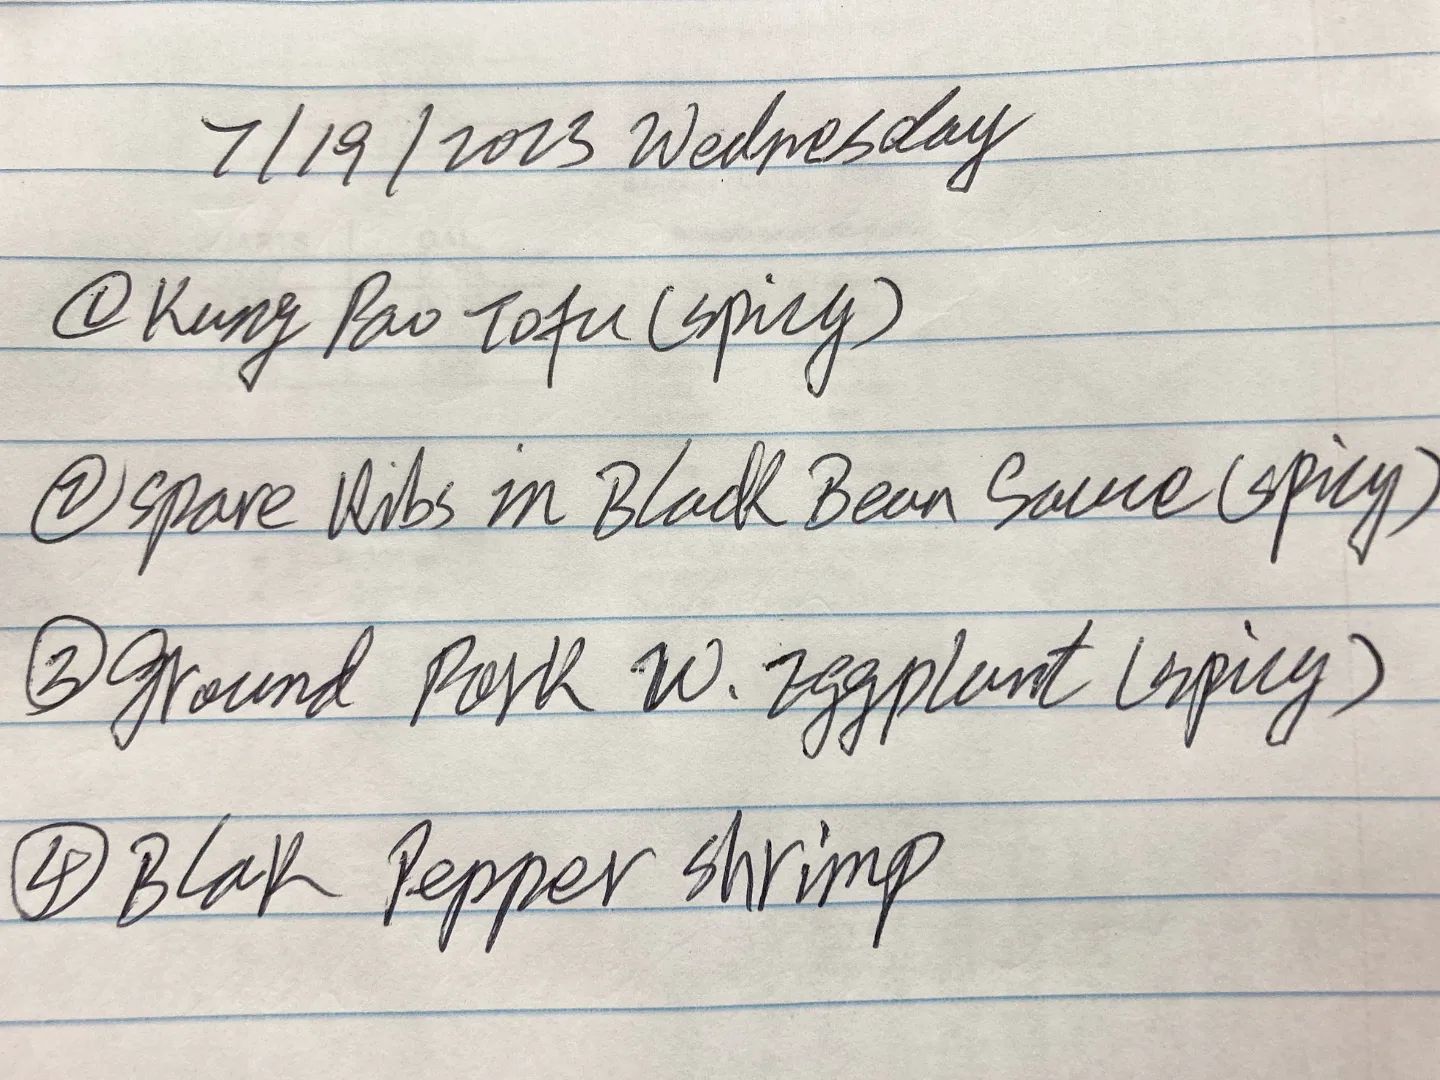 7/19/2023 Wednesday
① Kung Pao Tofu (spicy)
② Spare Ribs in Black Bean Sauce (spicy)
③ Ground Pork W. Eggplant (spicy)
④ Blak Pepper shrimp